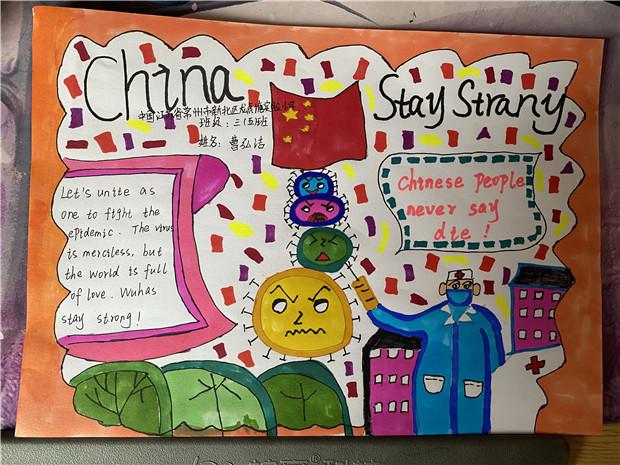 China
Stay Strany
中国江苏省常州市新北区龙虎塘实验小学
班级：三
班
姓名：曹弘洁
Let's unite as
one to fight the
epidemic. The virus
is merciless, but
the world is full
of love. Wuhas
stay strong!
Chinese people
never say
die!